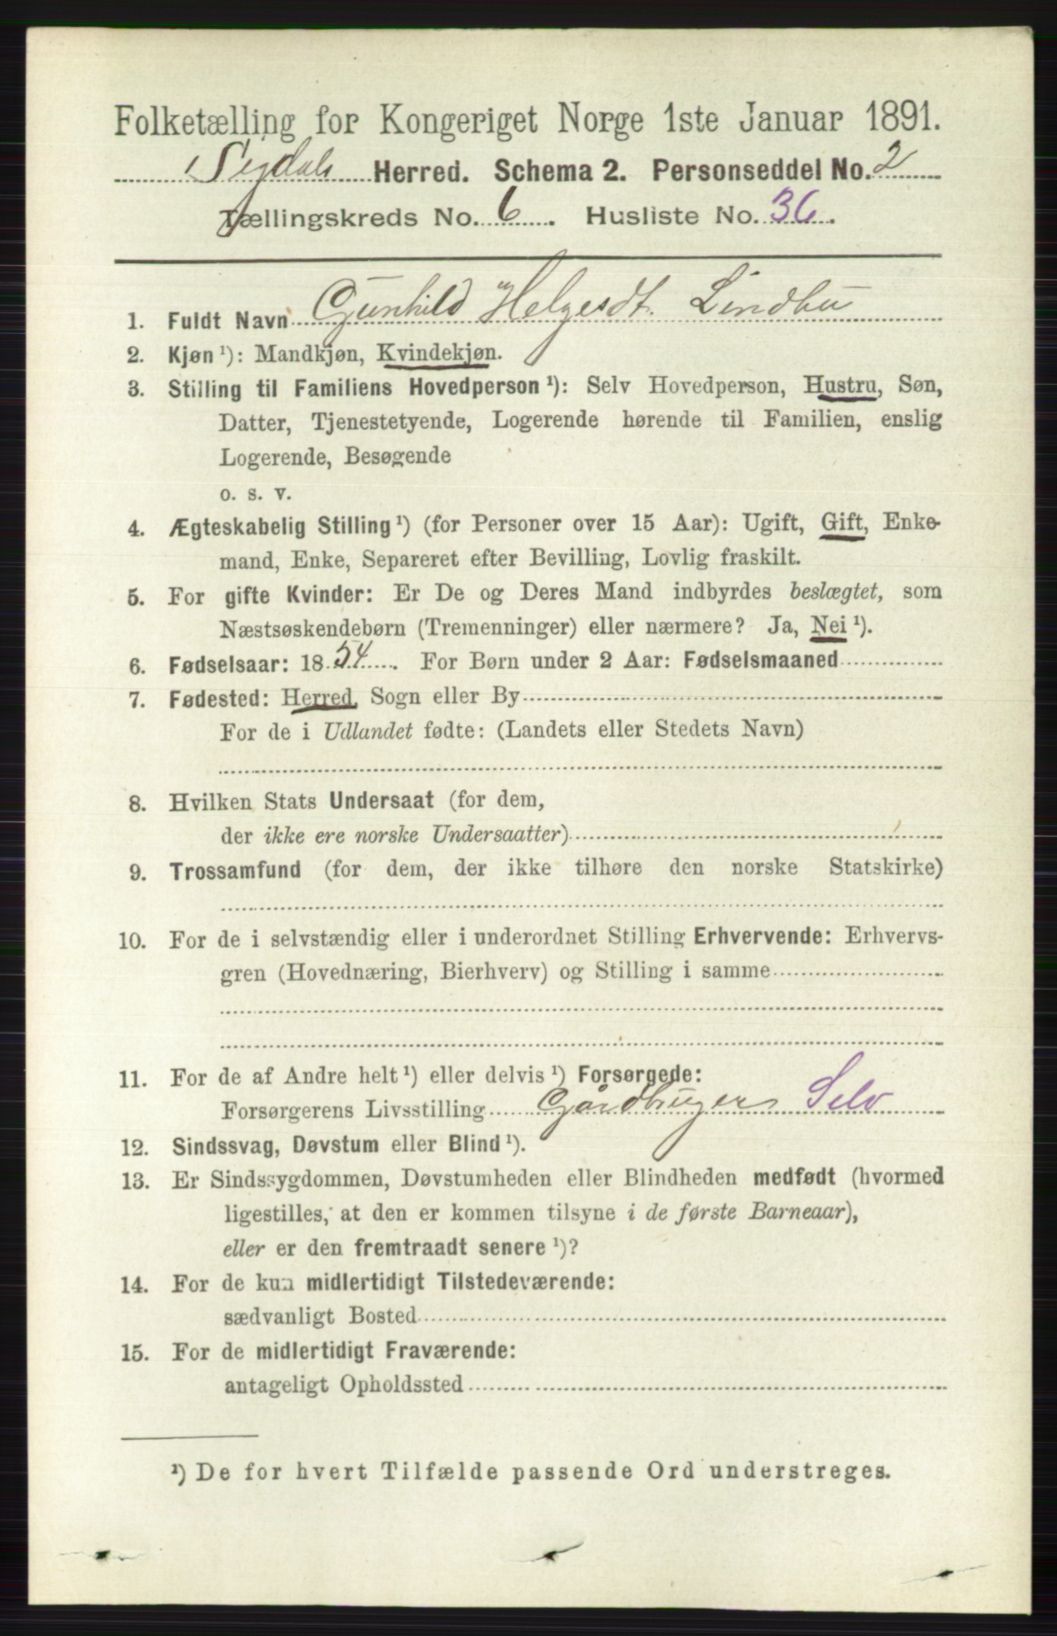 Folketælling for Kongeriget Norge 1ste Januar 1891.
Sigdals Herred. Schema 2. Personseddel No. 2
Tællingskreds No. 6. Husliste No. 36.
1. Fuldt Navn Gunhild Helgesdt. Lindbu
2. Kjøn ¹): Mandkjøn, Kvindekjøn.
3. Stilling til Familiens Hovedperson ¹): Selv Hovedperson, Hustru, Søn,
Datter, Tjenestetyende, Logerende hørende til Familien, enslig
Logerende, Besøgende
o. s. v.
4. Ægteskabelig Stilling ¹) (for Personer over 15 Aar): Ugift, Gift, Enke-
mand, Enke, Separeret efter Bevilling, Lovlig fraskilt.
5. For gifte Kvinder: Er De og Deres Mand indbyrdes beslægtet, som
Næstsøskendebørn (Tremenninger) eller nærmere? Ja, Nei ¹).
6. Fødselsaar: 1854. For Børn under 2 Aar: Fødselsmaaned
7. Fødested: Herred, Sogn eller By
For de i Udlandet fødte: (Landets eller Stedets Navn)
8. Hvilken Stats Undersaat (for dem,
der ikke ere norske Undersaatter)
9. Trossamfund (for dem, der ikke tilhøre den norske Statskirke)
10. For de i selvstændig eller i underordnet Stilling Erhvervende: Erhvervs-
gren (Hovednæring, Bierhverv) og Stilling i samme
11. For de af Andre helt ¹) eller delvis ¹) Forsørgede:
Forsørgerens Livsstilling Gårdbruger Selv
12. Sindssvag, Døvstum eller Blind ¹).
13. Er Sindssygdommen, Døvstumheden eller Blindheden medfødt (hvormed
ligestilles, at den er kommen tilsyne i de første Barneaar),
eller er den fremtraadt senere ¹)?
14. For de kun midlertidigt Tilstedeværende:
sædvanligt Bosted
15. For de midlertidigt Fraværende:
antageligt Opholdssted
¹) De for hvert Tilfælde passende Ord understreges.